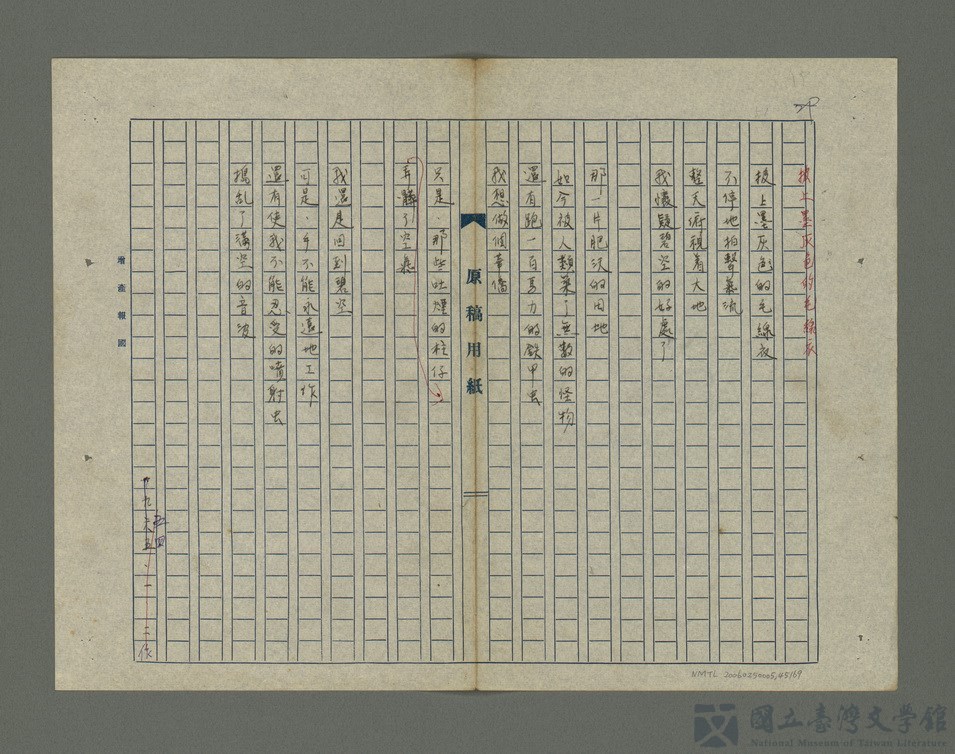 披上墨灰色的毛線衣
披上墨灰色的毛線衣
不停地拍擊氣流
整天俯視着大地
我懷疑碧空的好處了
那一片肥沃的田地
如今被人類築了無數的怪物
還有跑一百馬力的鉄甲虫
我想做個華僑
原稿用紙
只是．那些吐煙的柱仔
弄髒了空氣
我還是回到碧空
可是．手不能永遠地工作
還有使我不能忍受的噴射虫
搗乱了滿空的音波
增產報國
NMTL 20060250005,45169
國立臺灣文學館
National Museum of Taiwan Literature